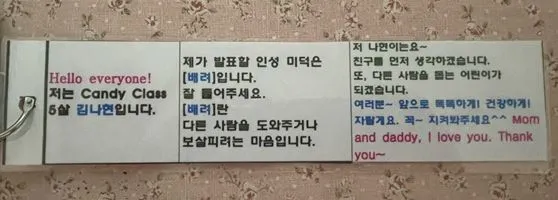 Hello everyone!
저는 Candy Class
5살 김나현입니다.
제가 발표할 인성 미덕은
[배려]입니다.
잘 들어주세요.
[배려]란
다른 사람을 도와주거나
보살피려는 마음입니다.
저 나현이는요~
친구를 먼저 생각하겠습니다.
또, 다른 사람을 돕는 어린이가
되겠습니다.
여러분~ 앞으로 똑똑하게! 건강하게!
자랄게요. 꼭~ 지켜봐주세요^^ Mom
and daddy, I love you. Thank
you~